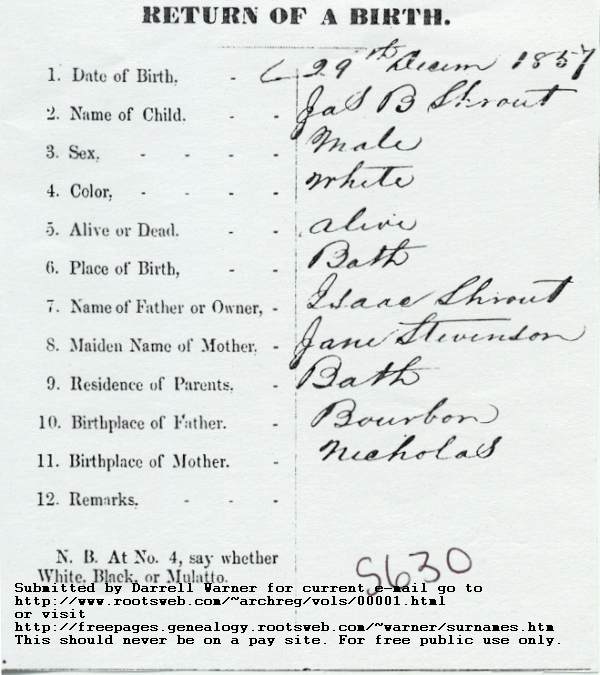 RETURN OF A BIRTH.
1. Date of Birth, - 29th Decem 1857
2. Name of Child. - - Jas B Shrout
3. Sex, - - - - Male
4. Color, - - - - White
5. Alive or Dead. - - alive
6. Place of Birth, - - Bath
7. Name of Father or Owner, - Isaac Shrout
8. Maiden Name of Mother. - Jane Stevenson
9. Residence of Parents. - Bath
10. Birthplace of Father. - Bourbon
11. Birthplace of Mother. - Nicholas
12. Remarks. - - -
N. B. At No. 4, say whether
White, Black, or Mulatto.
S630
Submitted by Darrell Warner for current e-mail go to
http://www.rootsweb.com/~archreg/vols/00001.html
or visit
http://freepages.genealogy.rootsweb.com/~warner/surnames.htm
This should never be on a pay site. For free public use only.